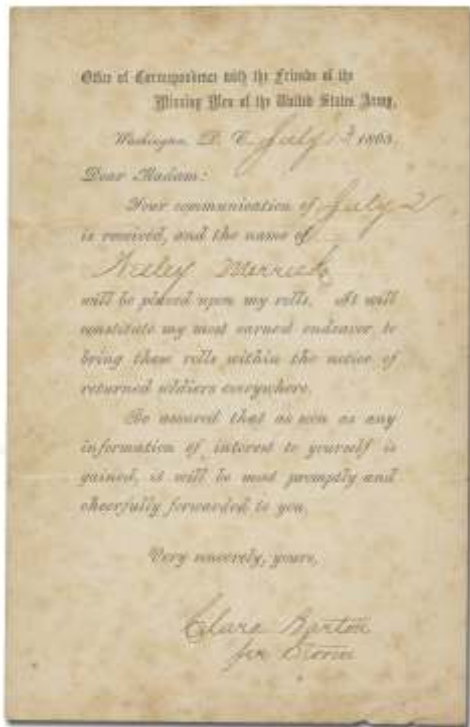 Office of Correspondence with the Friends of the
Missing Men of the United States Army,
Washington, D. C. July 1865.
Dear Madam:
Your communication of July 2
is received, and the name of
will be placed upon my rolls. It will
constitute my most earnest endeavor to
bring these rolls within the notice of
returned soldiers everywhere.
Be assured that as soon as any
information of interest to yourself is
gained, it will be most promptly and
cheerfully forwarded to you.
Very sincerely, yours,
Clara Barton